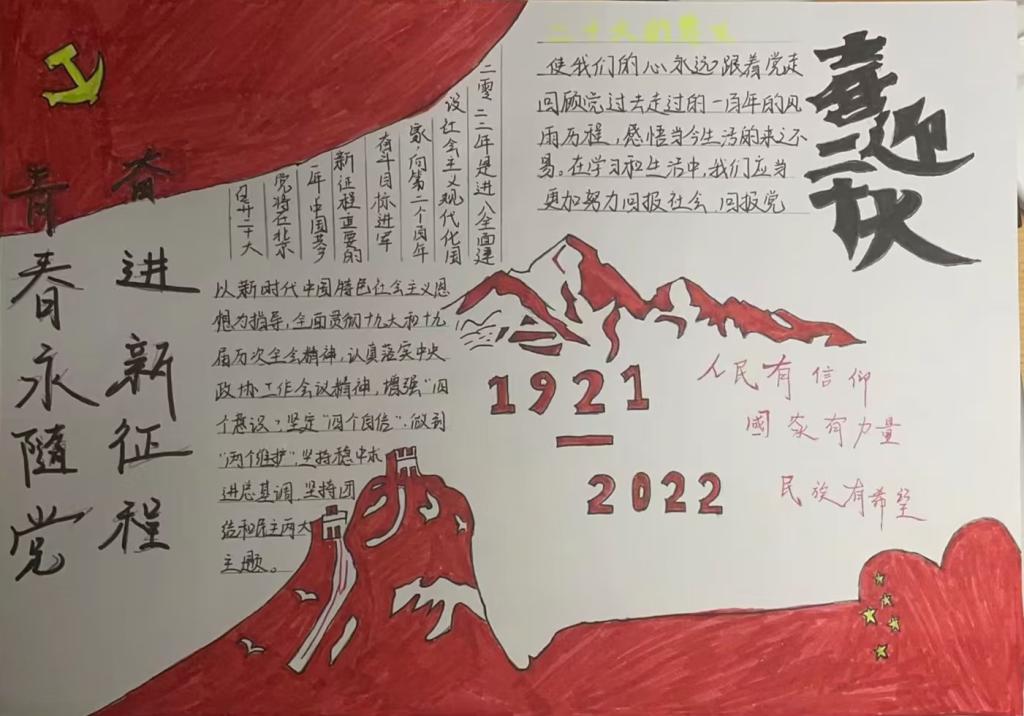 奋进新征程
青春永随党
二零二二年是进入全面建
设社会主义现代化国
家,向第二个百年
奋斗目标进军
新征程重要的
一年,中国共产
党将在北京
召开二十大
二十大的意义
使我们的心永远跟着党走
回顾党过去走过的一百年的风
雨历程,感悟当今生活的来之不
易。在学习和生活中,我们应当
更加努力回报社会、回报党
喜迎二十大
以新时代中国特色社会主义思
想为指导,全面贯彻十九大和十九
届历次全会精神,认真落实中央
政协工作会议精神,增强“四
个意识”、坚定“四个自信”、做到
“两个维护”,坚持稳中求
进总基调,坚持团
结和民主两大
主题。
1921
—
2022
人民有信仰
國家有力量
民族有希望